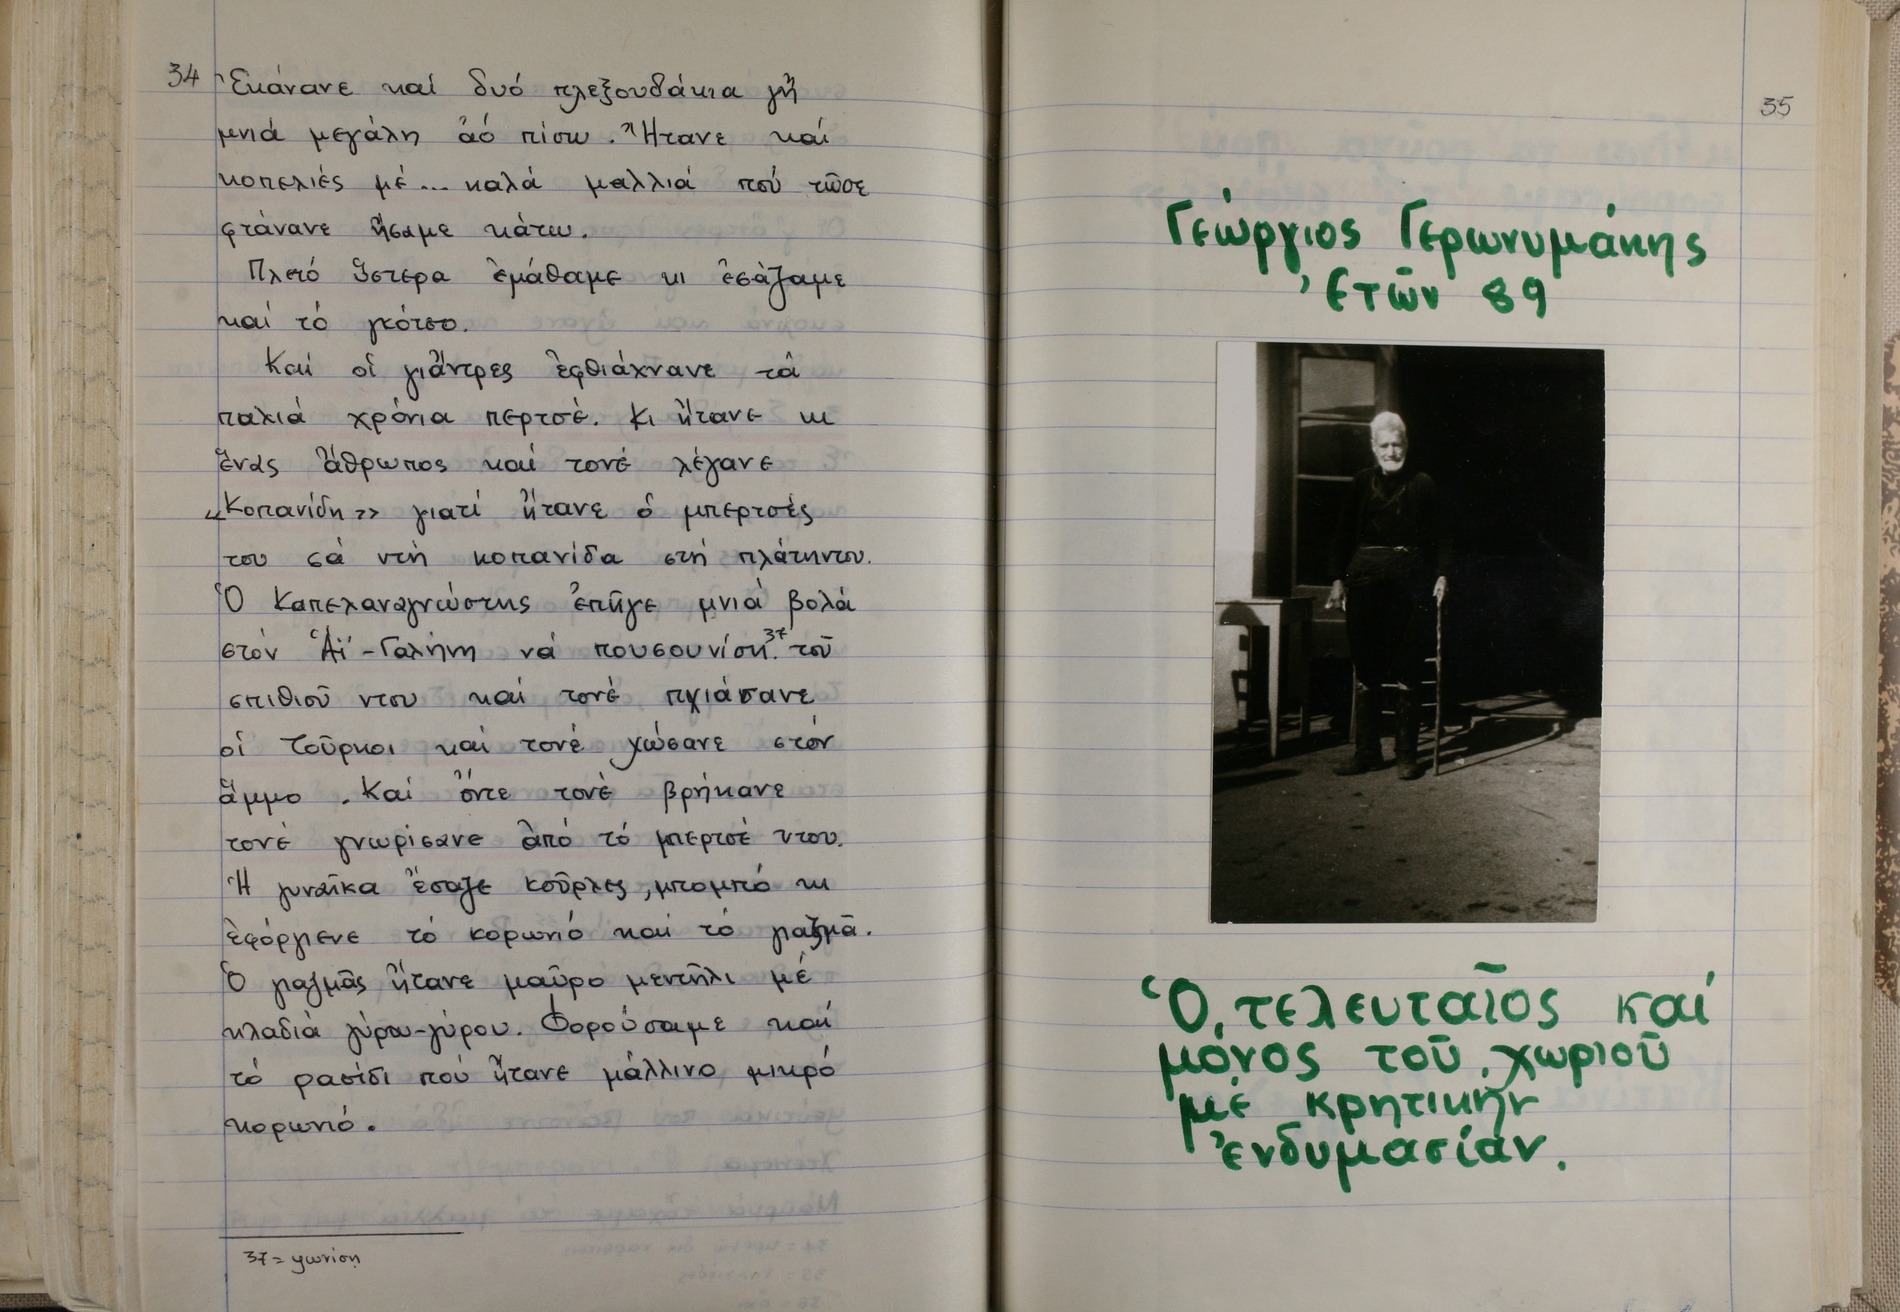 34
Ἐκάνανε καί δυό πλεξουδάκια γἤ
μνιά μεγάλη ἀό πίσω. Ἤτανε καί
κοπελιές μέ... καλά μαλλιά πού τῶσε
φτάνανε ἤσαμε κάτω.
Πλειό ὕστερα ἐμάθαμε κι ἐσάζαμε
καί τό γκότσο.
Καί οἱ γιἄντρες ἐφθιάχνανε τά
παλιά χρόνια περτσέ. Κι ἤτανε κι
ἕνας ἄθρωπος καί τονέ λέγανε
«Κοπανίδη» γιατί ἤτανε ὁ μπερτσές
του σά ντή κοπανίδα στή πλάτηντου.
Ὁ Καπελαναγνώστης ἐπῆγε μνιά βολά
στόν Ἁΐ-Γαλήνη νά πουσουνίσῃ.37 τοῦ
σπιθιοῦ ντου καί τονέ πχιάσανε
οἱ Τοῦρκοι καί τονέ χώσανε στόν
ἄμμο. Καί ὅντε τονέ βρήκανε
τονέ γνωρίσανε ἀπό τό μπερτσέ ντου.
Ἡ γυναῖκα ἔσαζε κοῦρλες, μπομπό κι
ἐφόργιενε τό κορωνιό καί τό γιαζμᾶ.
Ὁ γιαζμᾶς ἤτανε μαῦρο μεντῆλι μέ
κλαδιά γύρω-γύρου. Φορούσαμε καί
τό ρασίδι πού ἤτανε μάλλινο μικρό
κορωνιό.
37 = ψωνίσῃ
35
Γεώργιος Γερωνυμάκης
Ἐτῶν 89
Ὁ τελευταῖος καί
μόνος τοῦ χωριοῦ
μέ κρητικήν
ἐνδυμασίαν.